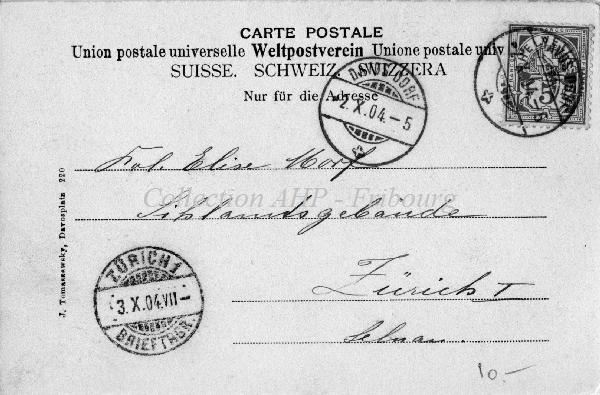 CARTE POSTALE
Union postale universelle Weltpostverein Unione postale univ
SUISSE. SCHWEIZ. SVIZZERA
Nur für die Adresse
DAVOS-DORF
2.X.04.-5
5
Frl. Elise Morf
Collection AHP - Fribourg
Sihlamtsgebäude
Zürich I
Selnau.
ZÜRICH 1
3.X.04.VII-
BRIEFTRGR.
J. Tomaszewsky, Davosplatz 220
10.-